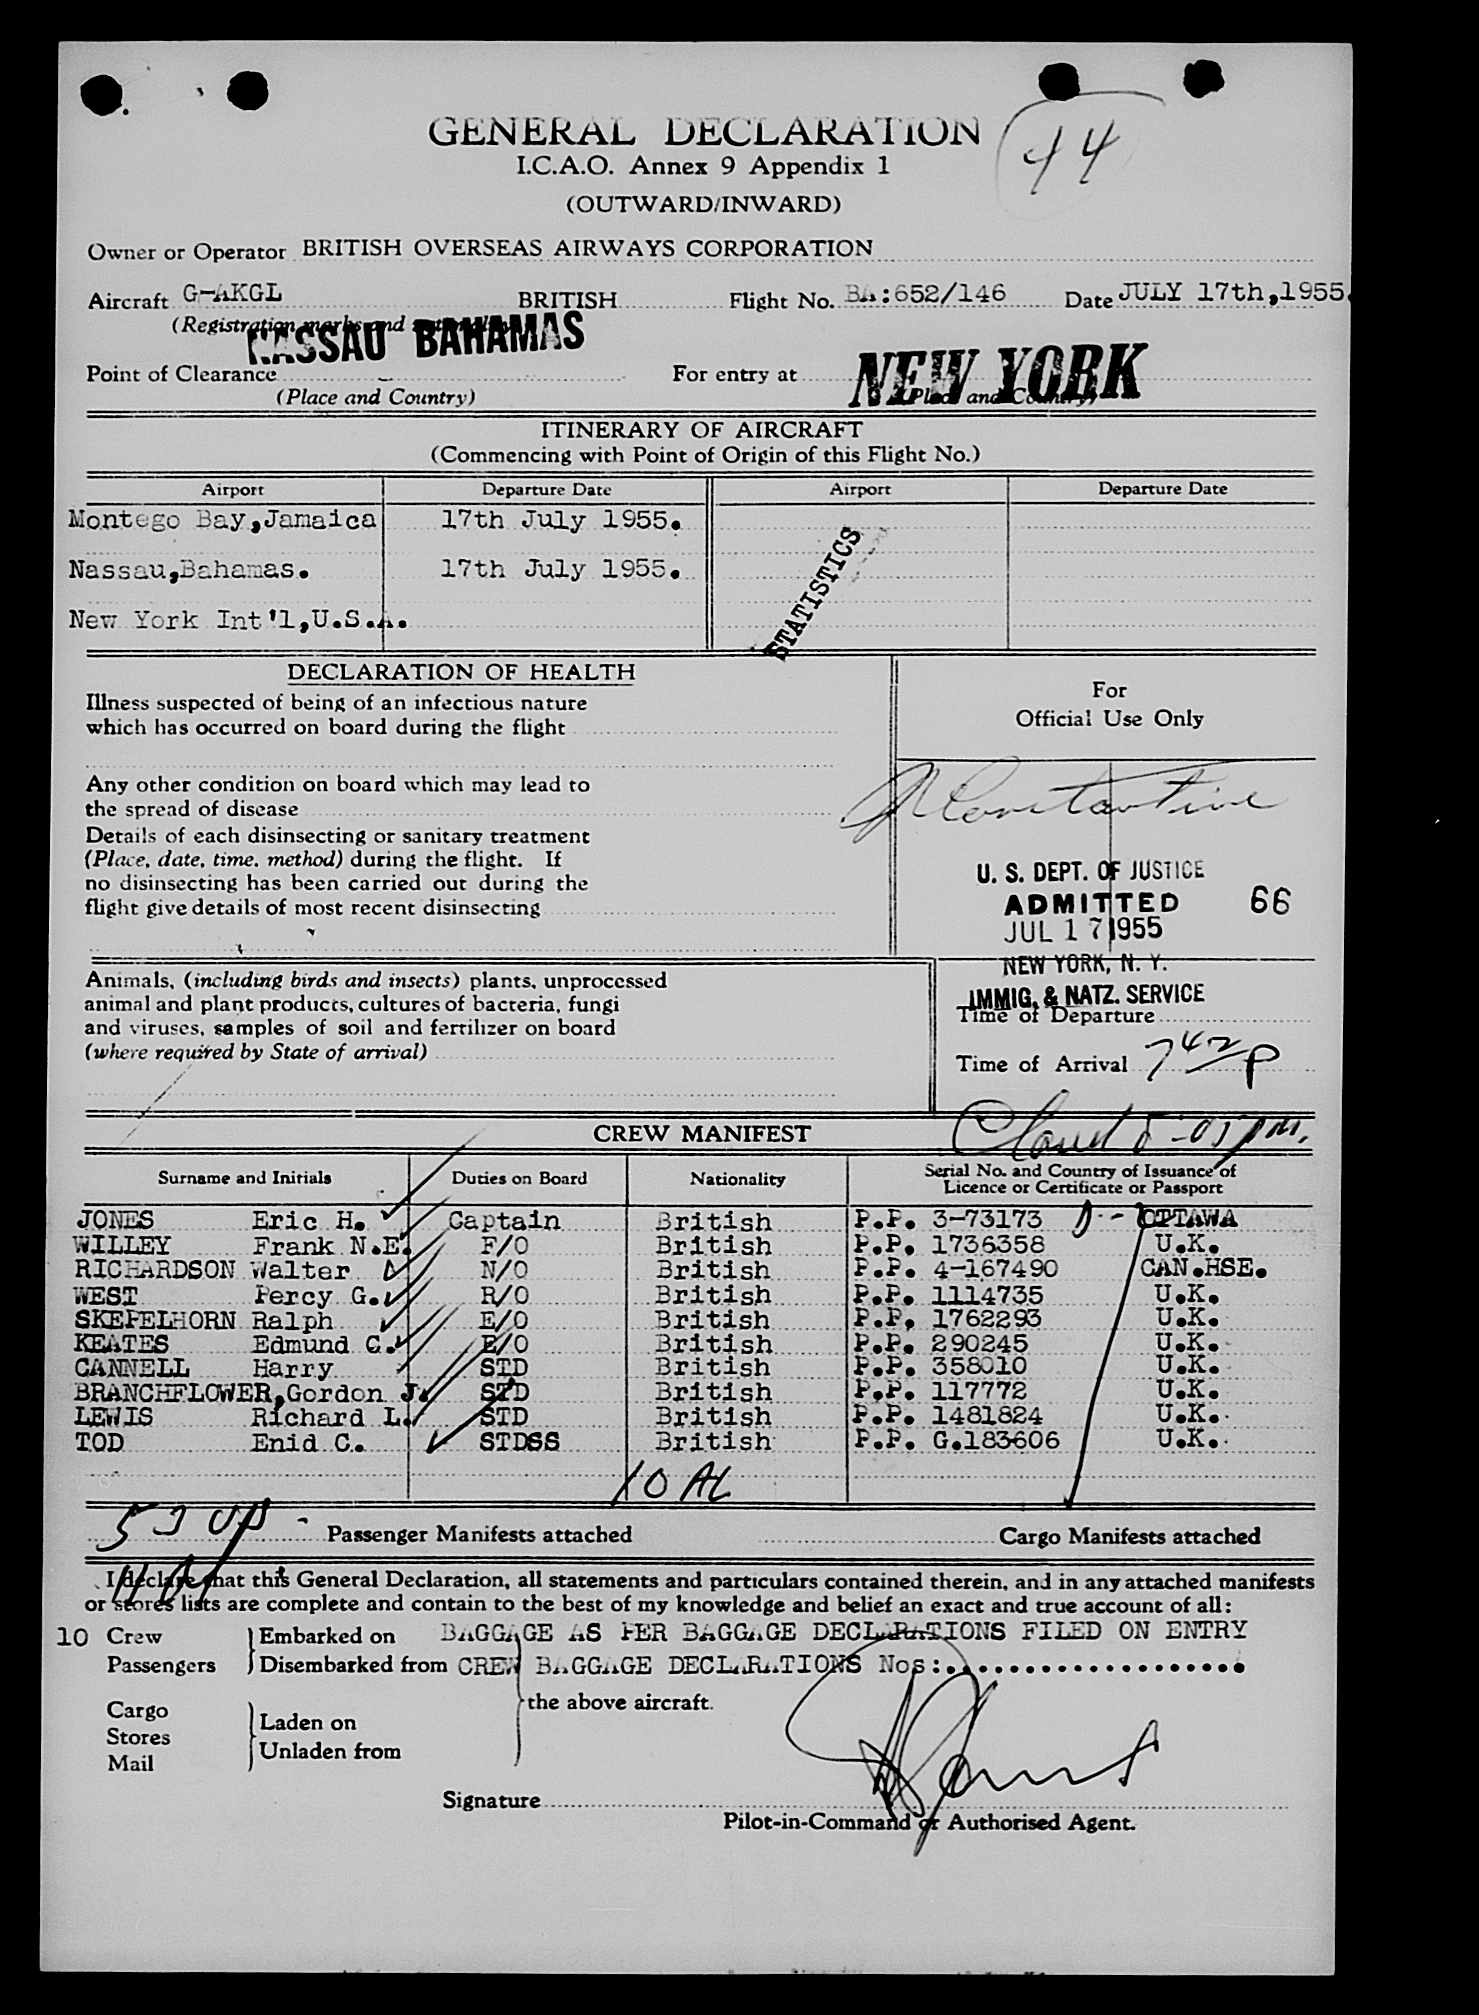 44
GENERAL DECLARATION
I.C.A.O. Annex 9 Appendix 1
(OUTWARD/INWARD)
Owner or Operator BRITISH OVERSEAS AIRWAYS CORPORATION
Aircraft G-AKGL BRITISH Flight No. BA:652/146 Date JULY 17th,1955.
(Registration marks and
NASSAU BAHAMAS NEW YORK
Point of Clearance For entry at
(Place and Country) (Place and Country)
ITINERARY OF AIRCRAFT
(Commencing with Point of Origin of this Flight No.)
Airport Departure Date Airport Departure Date
Montego Bay,Jamaica 17th July 1955.
Nassau,Bahamas. 17th July 1955.
New York Int'l,U.S.A.
STATISTICS
DECLARATION OF HEALTH
Illness suspected of being of an infectious nature
which has occurred on board during the flight
Any other condition on board which may lead to
the spread of disease
Details of each disinsecting or sanitary treatment
(Place, date, time, method) during the flight. If
no disinsecting has been carried out during the
flight give details of most recent disinsecting
For
Official Use Only
Constantine
U. S. DEPT. OF JUSTICE
ADMITTED 66
JUL 17 1955
NEW YORK, N. Y.
IMMIG. & NATZ. SERVICE
Animals, (including birds and insects) plants, unprocessed
animal and plant products, cultures of bacteria, fungi
and viruses, samples of soil and fertilizer on board
(where required by State of arrival)
Time of Departure
Time of Arrival 742 P
CREW MANIFEST
Surname and Initials Duties on Board Nationality Serial No. and Country of Issuance of
Licence or Certificate or Passport
JONES Eric H. Captain British P.P. 3-73173 OTTAWA
WILLEY Frank N.E. F/O British P.P. 1736358 U.K.
RICHARDSON Walter N/O British P.P. 4-167490 CAN.HSE.
WEST Percy G. R/O British P.P. 1114735 U.K.
SKEPELHORN Ralph E/O British P.P. 1762293 U.K.
KEATES Edmund G. E/O British P.P. 290245 U.K.
CANNELL Harry STD British P.P. 358010 U.K.
BRANCHFLOWER,Gordon J. STD British P.P. 117772 U.K.
LEWIS Richard L. STD British P.P. 1481824 U.K.
TOD Enid C. STDSS British P.P. G.183606 U.K.
10 AL
Passenger Manifests attached Cargo Manifests attached
I declare that this General Declaration, all statements and particulars contained therein, and in any attached manifests
or stores lists are complete and contain to the best of my knowledge and belief an exact and true account of all:
10 Crew Embarked on BAGGAGE AS PER BAGGAGE DECLARATIONS FILED ON ENTRY
Passengers Disembarked from CREW BAGGAGE DECLARATIONS Nos:....................
the above aircraft.
Cargo
Stores Laden on
Mail Unladen from
Signature
Pilot-in-Command or Authorised Agent.